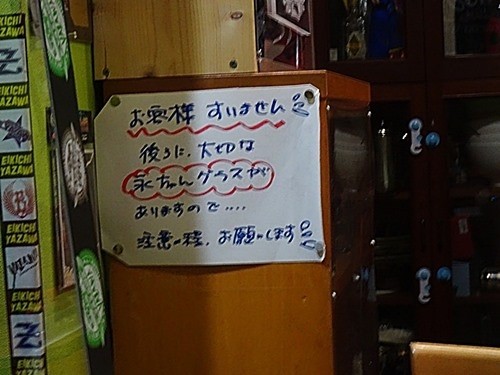 お客様 すいません
後ろに、大切な
永ちゃんグラスが
ありますので....
注意の程、お願いします
EIKICHI
YAZAWA
EIKICHI
EIKICHI
YAZAWA
EIKICHI
YAZAWA
EIKICHI
YAZAWA
YAZAWA
EIKICHI
YAZAWA
EIKICHI
YAZAWA